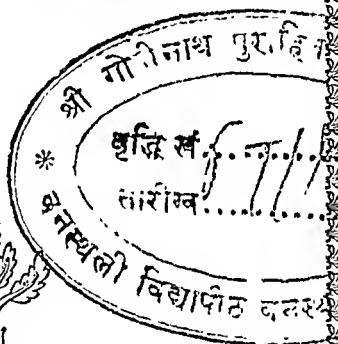 श्री गोपीनाथ पुरोहित
वृद्धि सं.
तारीख
* वनस्थली विद्यापीठ